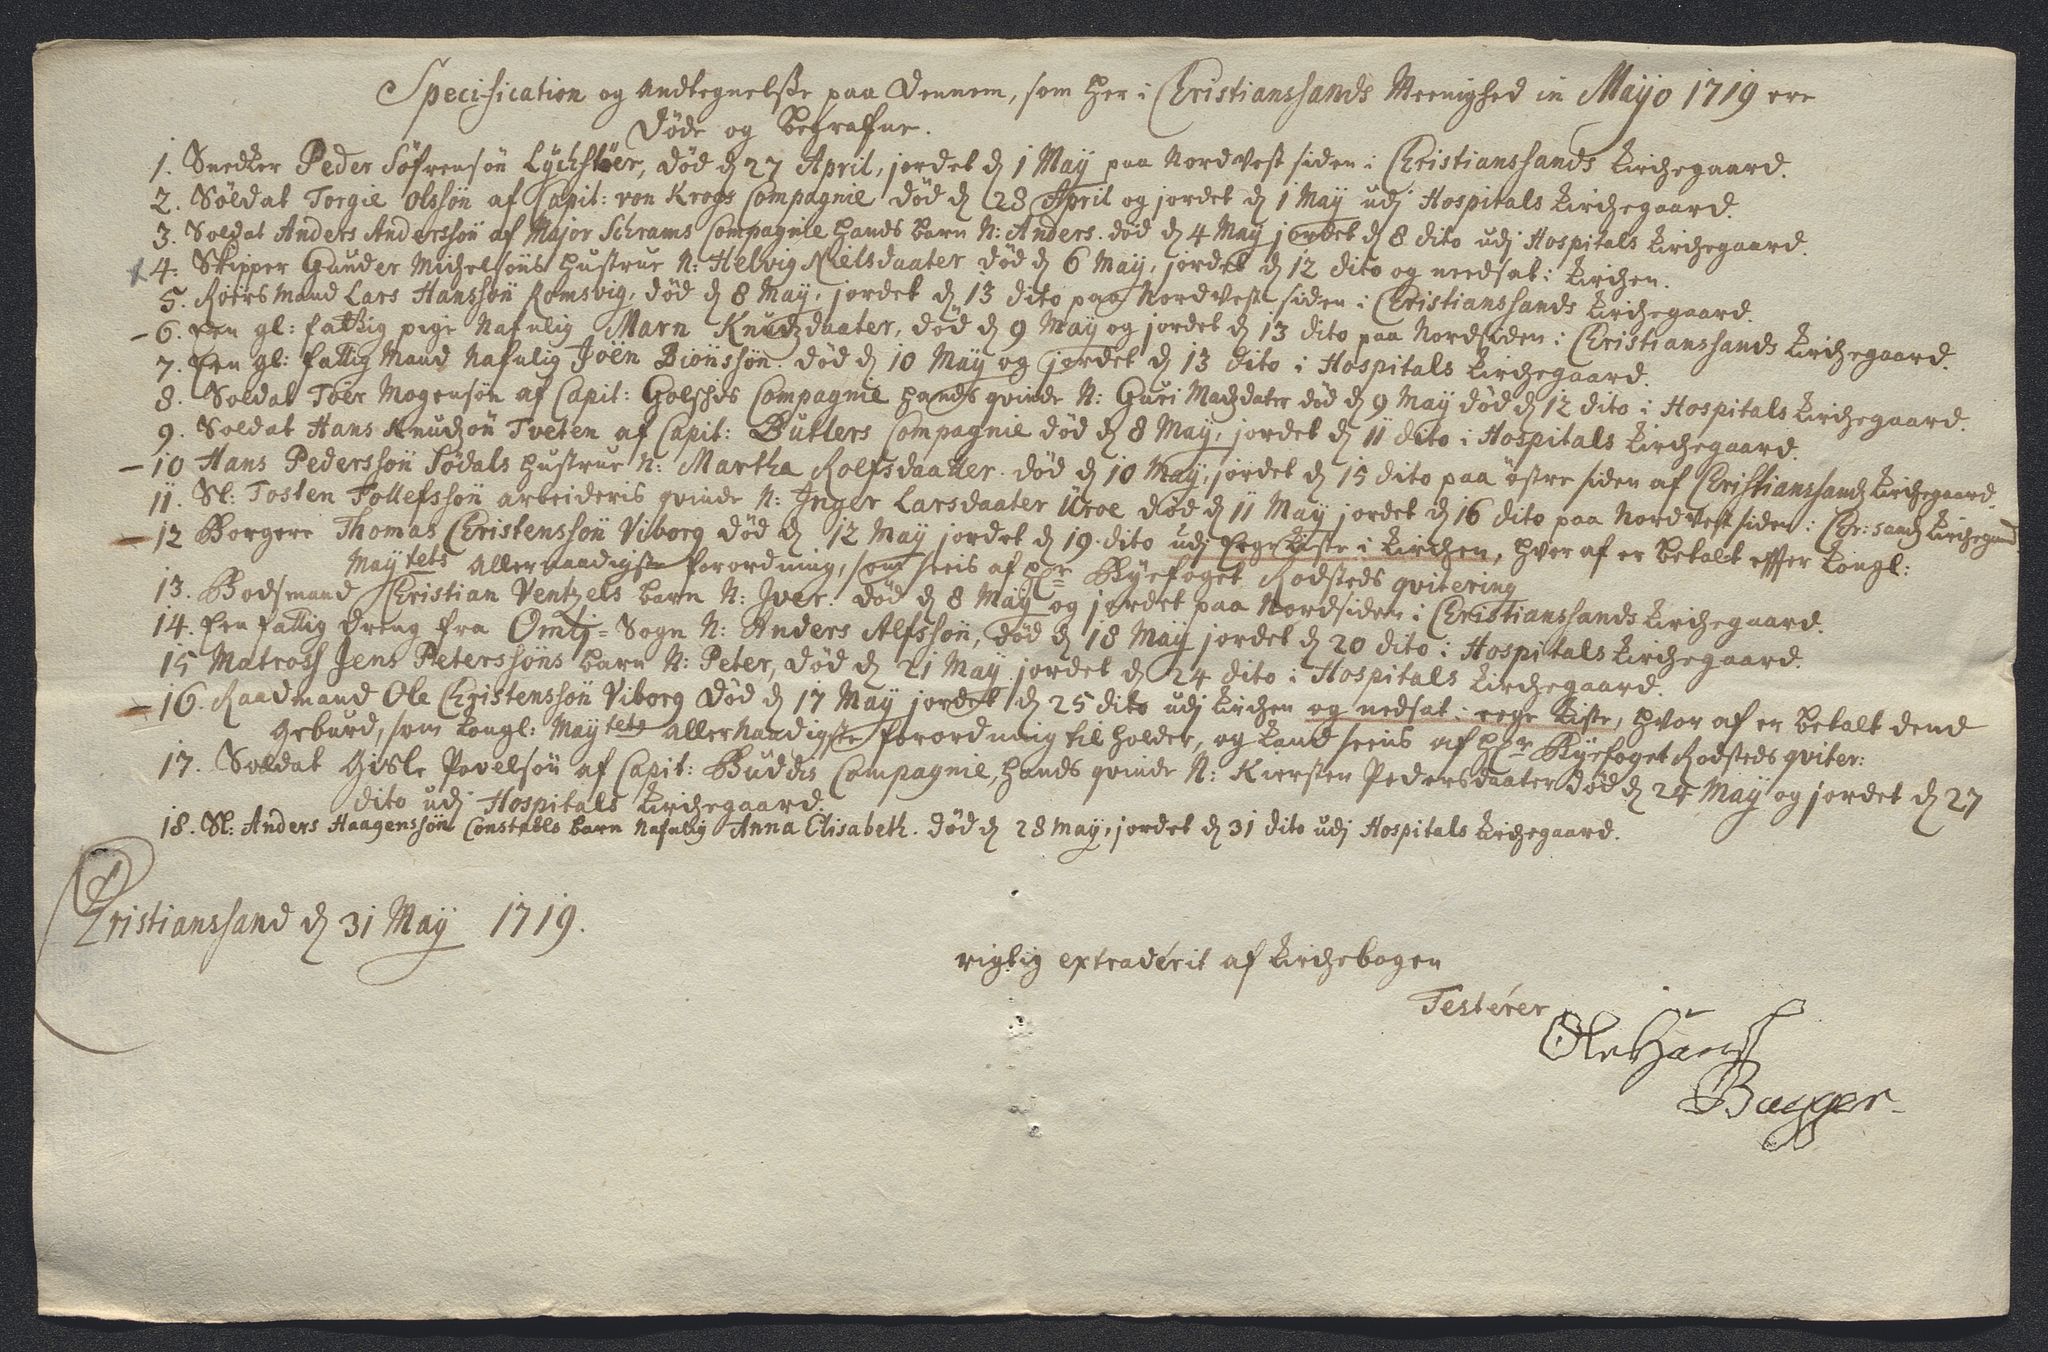 Specification og Andtegnelsse paa Dennem, som her i Christianssands Meenighed in Mayo 1719 ere
døde og begrafne.
1. Snedker Peder Søfrensøn Lyckstöer, død d 27 April, jordet d 1 May paa Nordvest siden i Christianssands Kirchegaard.
2. Soldat Torgie Olssøn af Capit: von Krogs Compagnie død d 28 April og jordet d 1 May udj Hospitals Kirchegaard.
3. Soldat Anders Anderssøn af Major Schrams Compagnie hands barn N: Anders. død d 4 May jordet d 8 dito udj Hospitals Kirchegaard.
4. Skipper Gunder Michelsøns hustrue N: Helvig Nielsdaater død d 6 May, jordet d 12 dito og needsat i Kirchen.
5. Roersmand Lars Hanssøn Romsvig, død d 8 May, jordet d 13 dito paa Nordvest siden i Christianssands Kirchegaard.
- 6. Een gl: fattig pige Nafnlig Marn Knudzdaater, død d 9 May og jordet d 13 dito paa Nordsiden i Christianssands Kirchegaard.
7. Een gl: fattig Mand Nafnlig Joen Biönssøn. død d 10 May og jordet d 13 dito i Hospitals Kirchegaard.
8. Soldat Toer Mogensøn af Capit: Golschs Compagnie hands qvinde N: Guri Madzdater død d 9 May død d 12 dito i Hospitals Kirchegaard.
9. Soldat Hans Knudzøn Tveten af Capit: Butlers Compagnie død d 8 May, jordet d 11 dito i Hospitals Kirchegaard.
- 10 Hans Pederssøn Sødals hustrue N: Martha Rolfsdaatter. død d 10 May, jordet d 15 dito paa østre siden af Christianssandz Kirchegaard.
11. Sl: Tosten Tollefssøn arbeideris qvinde N: Inger Larsdaater Uroe død d 11 May jordet d 16 dito paa Nordvest siden i Chr: sandz Kirchegaard
- 12 Borgere Thomas Christenssøn Viborg død d 12 May jordet d 19. dito udj Eege Kiste i Kirchen, hvor af er betalt effter Kongl:
Maytets Allernaadigste forordning, som sees af Hr Byefoget Rodsteds qvitering
13. Bodsmand Christian Ventzels barn N: Iver. død d 8 May og jordet paa Nordsiden i Christianssands Kirchegaard.
14. Een fattig dreng fra Omlj= Sogn N: Anders Alfssøn, død d 18 May jordet d 20 dito i Hospitals Kirchegaard.
15 Matross Jens Peterssøns barn N: Peter, død d 21 May jordet d 24 dito i Hospitals Kirchegaard.
- 16. Raadmand Ole Christenssøn Viborg død d 17 May jordet d 25 dito udj Kirchen og nedsat i eege Kiste, hvor af er betalt dend
Geburd, som Kongl: Maytets Allernaadigste forordning til holder, og kand sees af Hr Byefoget Rodsteds qviter:
17. Soldat Gisle Povelsøn af Capit: Buddis Compagnie, hands qvinde N: Kiersten Pedersdaater død d 24 May og jordet d 27
dito udj Hospitals Kirchegaard.
18. Sl: Anders Haagenssøn Constabls barn Nafnlig Anna Elisabeth. død d 28 May, jordet d 31 dito udj Hospitals Kirchegaard.
Christianssand d 31 May 1719.
rigtig extraderit af Kirchebogen
Testérer
Ole Hanss
Bagger